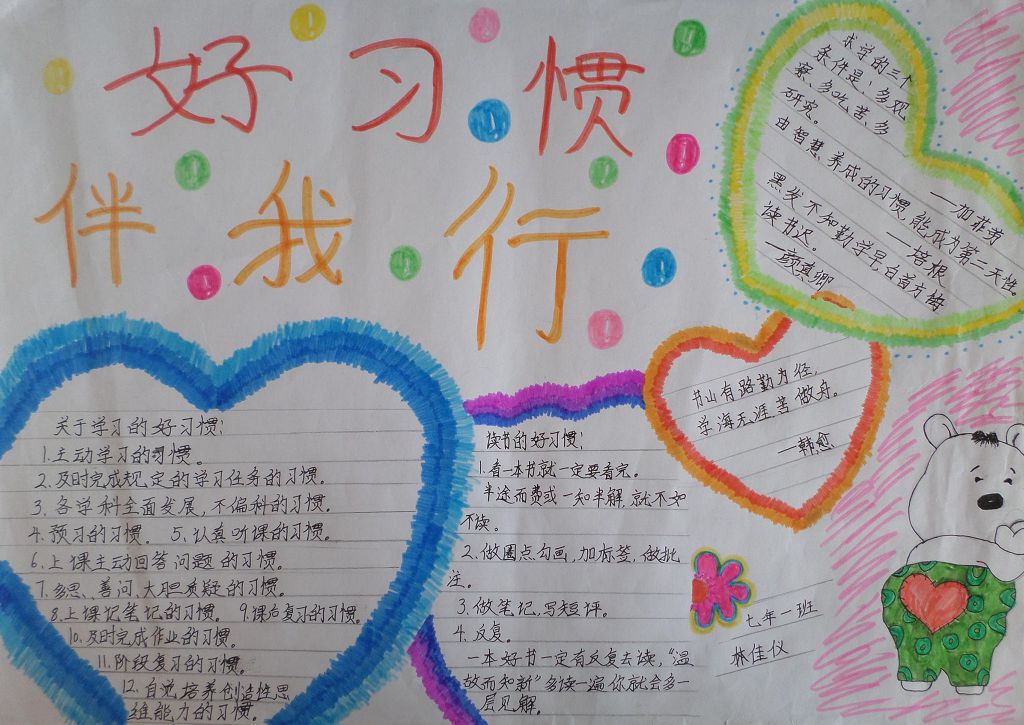 好习惯
伴我行
求学的三个
条件是：多观
察、多吃苦、多
研究。
——加菲劳
由智慧养成的习惯，能成为第二天性。
——培根
黑发不知勤学早，白首方悔
读书迟。
——颜真卿
书山有路勤为径，
学海无涯苦做舟。
——韩愈
关于学习的好习惯：
1.主动学习的习惯。
2.及时完成规定的学习任务的习惯。
3.各学科全面发展，不偏科的习惯。
4.预习的习惯。 5.认真听课的习惯。
6.上课主动回答问题的习惯。
7.多思、善问、大胆质疑的习惯。
8.上课记笔记的习惯。 9.课后复习的习惯。
10.及时完成作业的习惯。
11.阶段复习的习惯。
12.自觉培养创造性思
维能力的习惯。
读书的好习惯：
1.看一本书就一定要看完。
半途而费或一知半解，就不如
不读。
2.做圈点勾画，加标签，做批
注。
3.做笔记，写短评。
4.反复。
一本好书一定有反复去读，“温
故而知新”多读一遍你就会多一
层见解。
七年一班
林佳仪